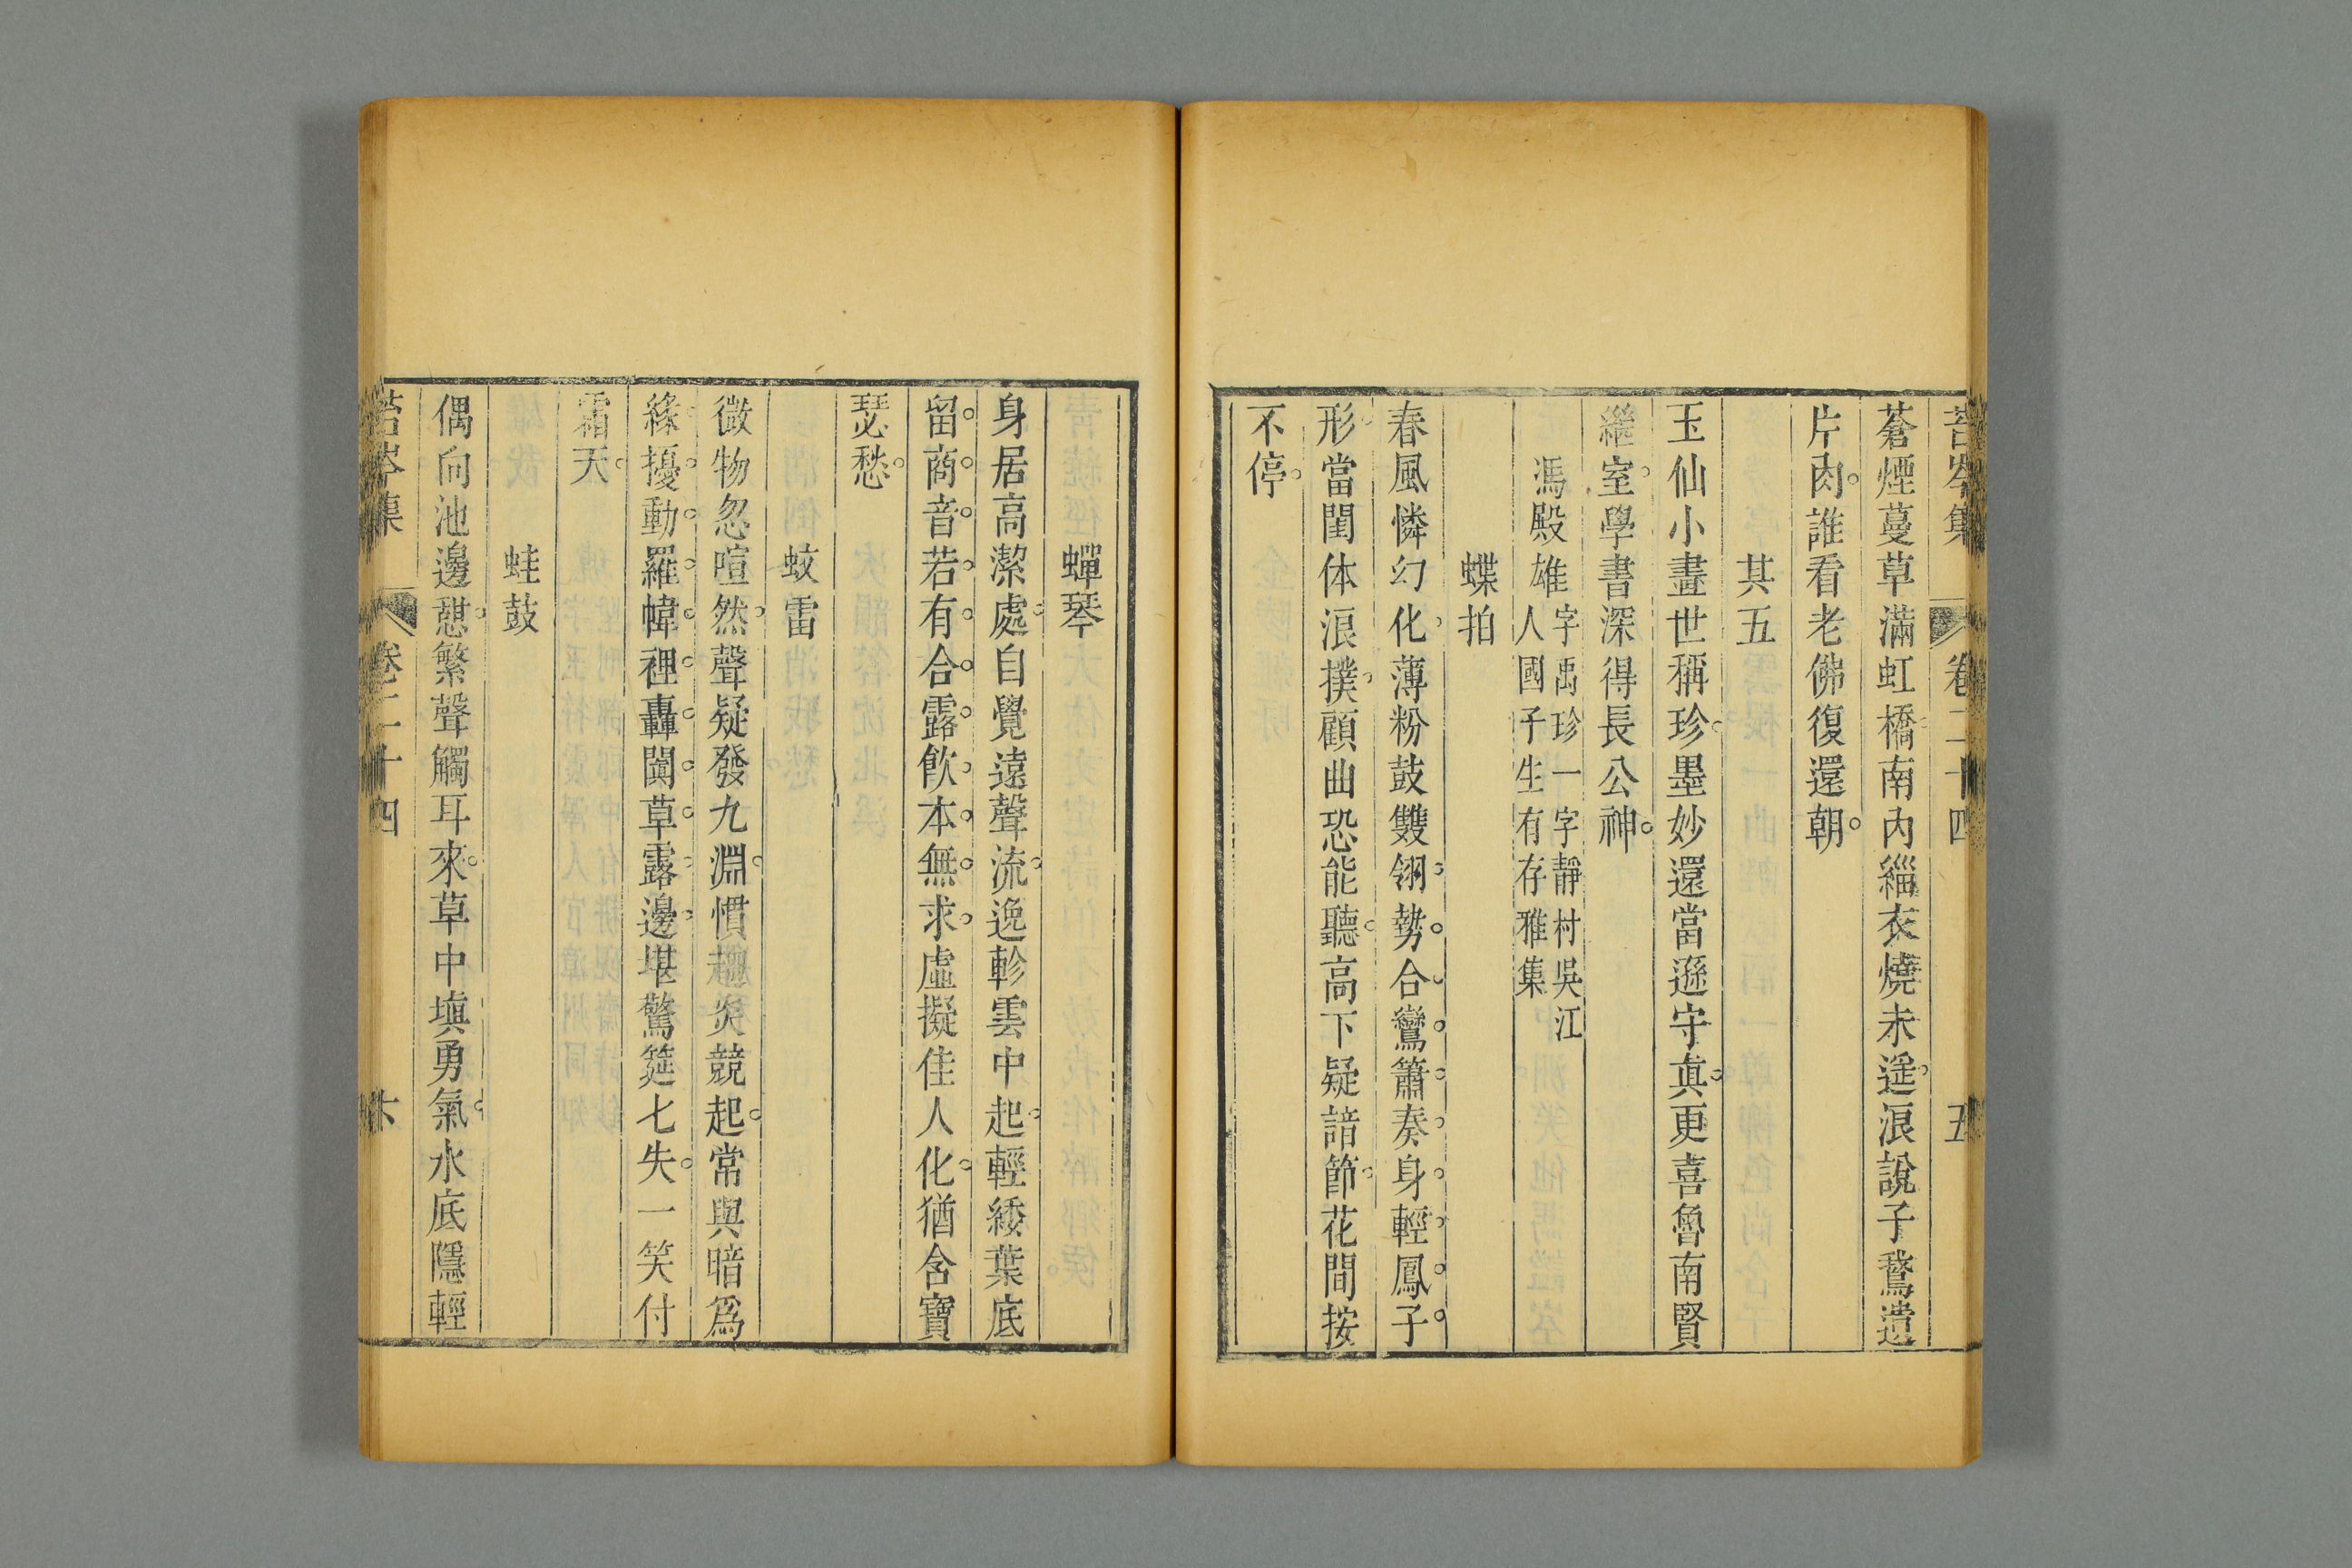 苔岑集 卷二十四 五
蒼煙蔓草滿虹橋南內緇衣燒未遥浪說子鵞遺
片肉誰看老佛復還朝
其五
玉仙小畫世稱珍墨妙還當遜守眞更喜魯南賢
繼室學書深得長公神
馮殿雄字禹珍一字靜村吳江
人國子生有存雅集
蝶拍
春風憐幻化薄粉鼓雙翎勢合鸞簫奏身輕鳳子
形當閨体浪撲顧曲恐能聽高下疑諳節花間按
不停
蟬琴
身居高潔處自覺遠聲流逸軫雲中起輕綾葉底
留商音若有合露飲本無求虛擬佳人化猶含寶
瑟愁
蚊雷
微物忽喧然聲疑發九淵慣趨炎競起常與暗爲
緣擾動羅幃裡轟闐草露邊堪驚筵七失一笑付
霜天
蛙鼓
偶向池邊憇繁聲觸耳來草中塡勇氣水底隱輕
苔岑集 卷二十四 六